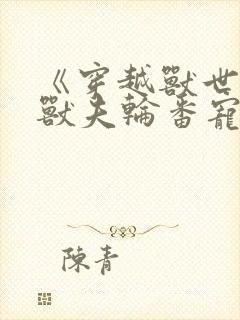 《穿越獸世
獸夫輪番寵
陳青